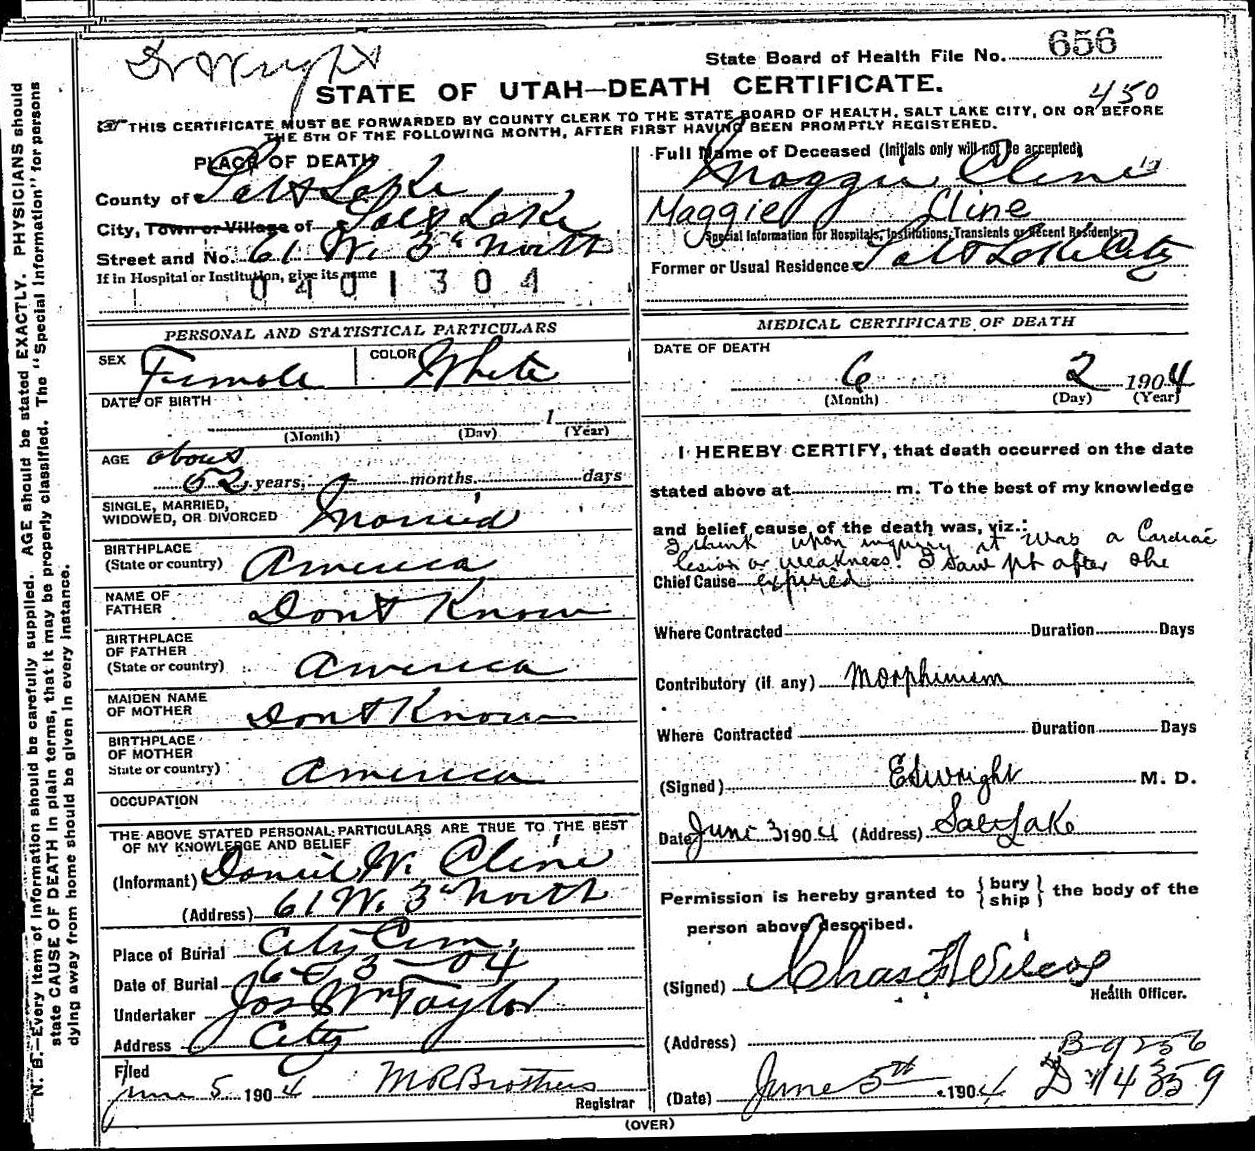 Dr Wright
State Board of Health File No. 656
STATE OF UTAH—DEATH CERTIFICATE.
450
THIS CERTIFICATE MUST BE FORWARDED BY COUNTY CLERK TO THE STATE BOARD OF HEALTH, SALT LAKE CITY, ON OR BEFORE
THE 5TH OF THE FOLLOWING MONTH, AFTER FIRST HAVING BEEN PROMPTLY REGISTERED.
PLACE OF DEATH
County of Salt Lake
City, Town or Village of Salt Lake
Street and No. 61 W. 3rd North
If in Hospital or Institution, give its name
0401304
Full Name of Deceased (Initials only will not be accepted)
Maggie Cline
Maggie Cline
Special Information for Hospitals, Institutions, Transients or Recent Residents
Former or Usual Residence Salt Lake City
PERSONAL AND STATISTICAL PARTICULARS
SEX Female COLOR White
DATE OF BIRTH
1
(Month) (Day) (Year)
AGE about
52 years, months. days
SINGLE, MARRIED,
WIDOWED, OR DIVORCED Married
BIRTHPLACE
(State or country) America
NAME OF
FATHER Dont Know
BIRTHPLACE
OF FATHER
(State or country) America
MAIDEN NAME
OF MOTHER Dont Know
BIRTHPLACE
OF MOTHER
State or country) America
OCCUPATION
THE ABOVE STATED PERSONAL PARTICULARS ARE TRUE TO THE BEST
OF MY KNOWLEDGE AND BELIEF
(Informant) Daniel W. Cline
(Address) 61 W. 3rd North
Place of Burial City Cem.
Date of Burial 6-3-04
Undertaker Jos Wm Taylor
Address City
Filed
June 5 1904 M R Brothers
Registrar
MEDICAL CERTIFICATE OF DEATH
DATE OF DEATH
6 2 1904
(Month) (Day) (Year)
I HEREBY CERTIFY, that death occurred on the date
stated above at m. To the best of my knowledge
and belief cause of the death was, viz.:
I think upon inquiry it was a Cardiac
lesion or weakness. I saw pt after she
Chief Cause expired
Where Contracted Duration Days
Contributory (if any) Morphinism
Where Contracted Duration Days
(Signed) E D Wright M. D.
Date June 3 1904 (Address) Salt Lake
Permission is hereby granted to {bury
ship} the body of the
person above described.
(Signed) Chas F Wilcox
Health Officer.
(Address)
B 9256
(Date) June 5th 1904
(OVER)
N. B.—Every item of information should be carefully supplied. AGE should be stated EXACTLY. PHYSICIANS should
state CAUSE OF DEATH in plain terms, that it may be properly classified. The "Special Information" for persons
dying away from home should be given in every instance.